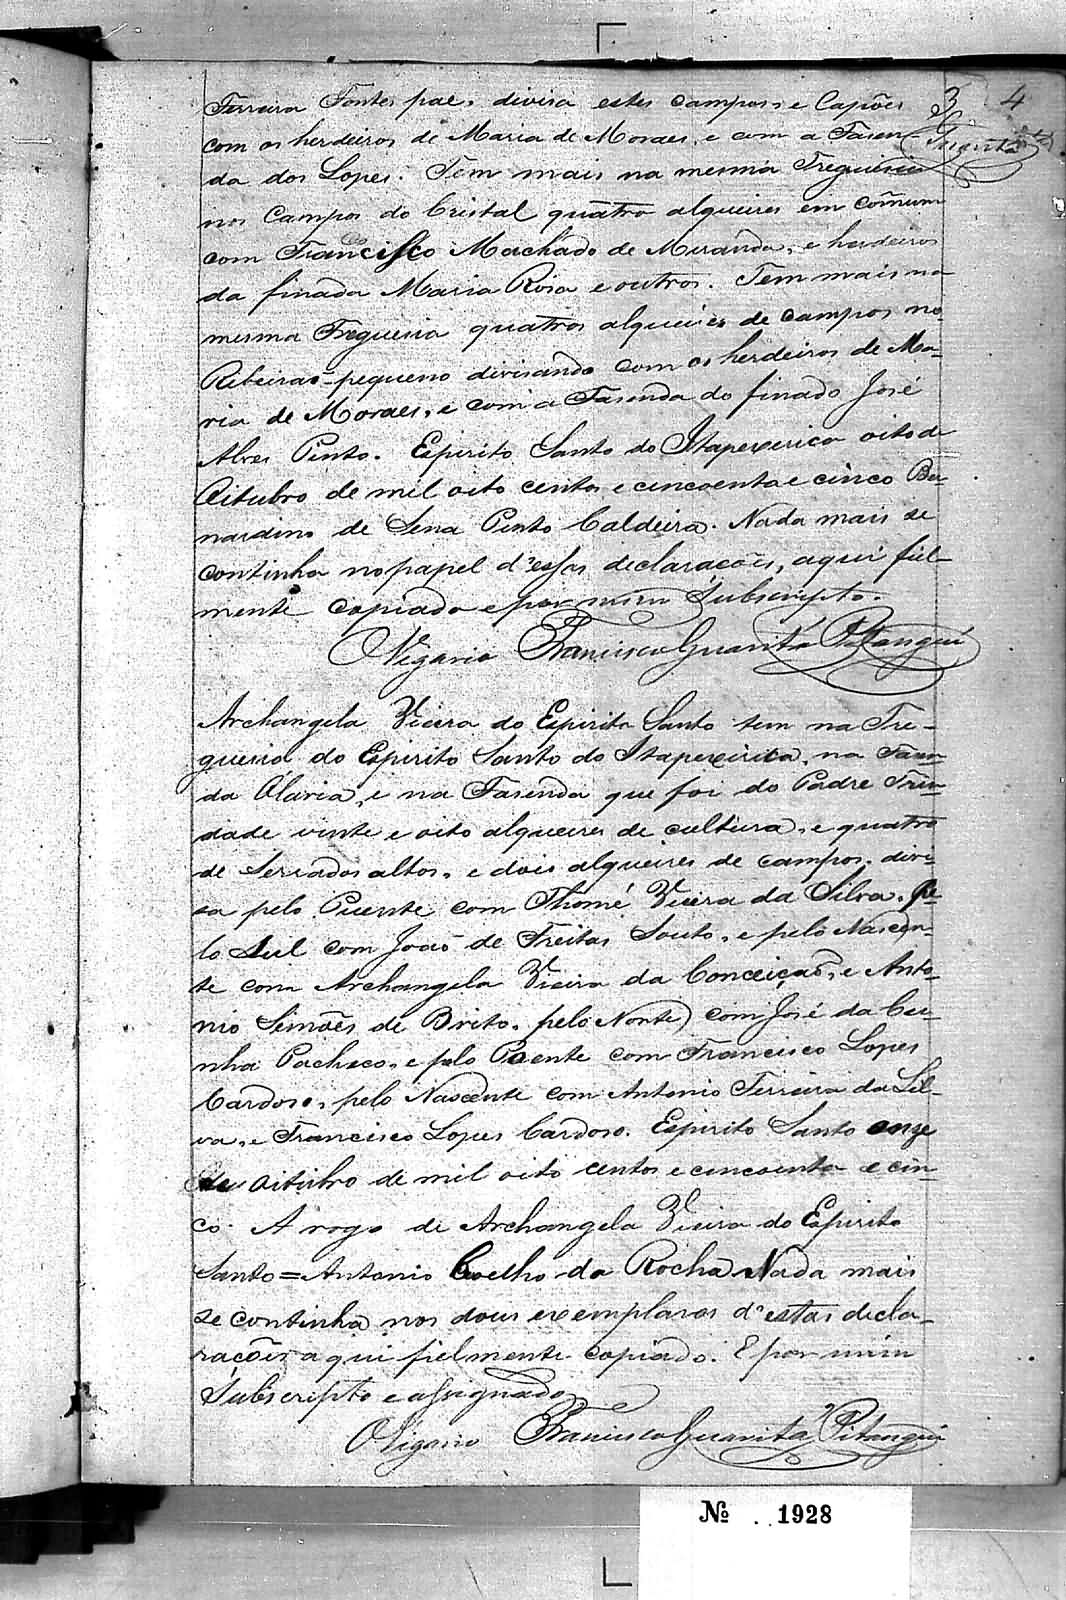 3 4
Guarita
Ferreira Fontes pae, divisa estes campos, e Capões
com os herdeiros de Maria de Moraes, e com a Fasen-
da dos Lopes. Tem mais na mesma Freguesia
nos Campos do Cristal quatro alqueires em cõmum
com Francisco Machado de Miranda, e herdeiros
da finada Maria Rosa e outros. Tem mais na
mesma Freguesia quatros alqueires de campos no
Ribeirao-pequeno divisando com os herdeiros de Ma-
ria de Moraes, e com a Fasenda do finado José
Alves Pinto. Espirito Santo do Itapexerica oito de
Oitubro de mil oito centos e cincoenta e cinco Ber
nardino de Sena Pinto Caldeira. Nada mais se
continha no papel d'essas declaracões, aqui fiel-
mente copiado e por mim Subscripto.
O Vigario Francisco Guarita Pitangui
Archangela Vieira do Espirito Santo tem na Fre-
guesia do Espirito Santo do Itapexirica, na Fasen
da Olaria, e na Fasenda que foi do Padre Trin-
dade vinte e oito alqueires de cultura, e quatro
de Serrados altos, e dois alqueires de campos. divi-
sa pelo Puente com Thomé Vieira da Silva, Pe-
lo Sul com João de Freitas Souto, e pelo Nascen-
te com Archangela Vieira da Conceição, e Anto-
nio Simões de Brito, pelo Norte com José da Cu-
nha Pacheco, e pelo Poente com Francisco Lopes
Cardoso, pelo Nascente com Antonio Ferreira da Sil-
va, e Francisco Lopes Cardoso. Espirito Santo onze
de oitubro de mil oito centos e cincoenta e cin-
co. A rogo de Archangela Vieira do Espirito
Santo = Antonio Coelho da Rocha Nada mais
se continha nos dous exemplares d'estas decla-
racões aqui fielmente copiado. E por mim
Subscripto e assignado
O Vigario Francisco Guarita Pitangui
Nº . . 1928